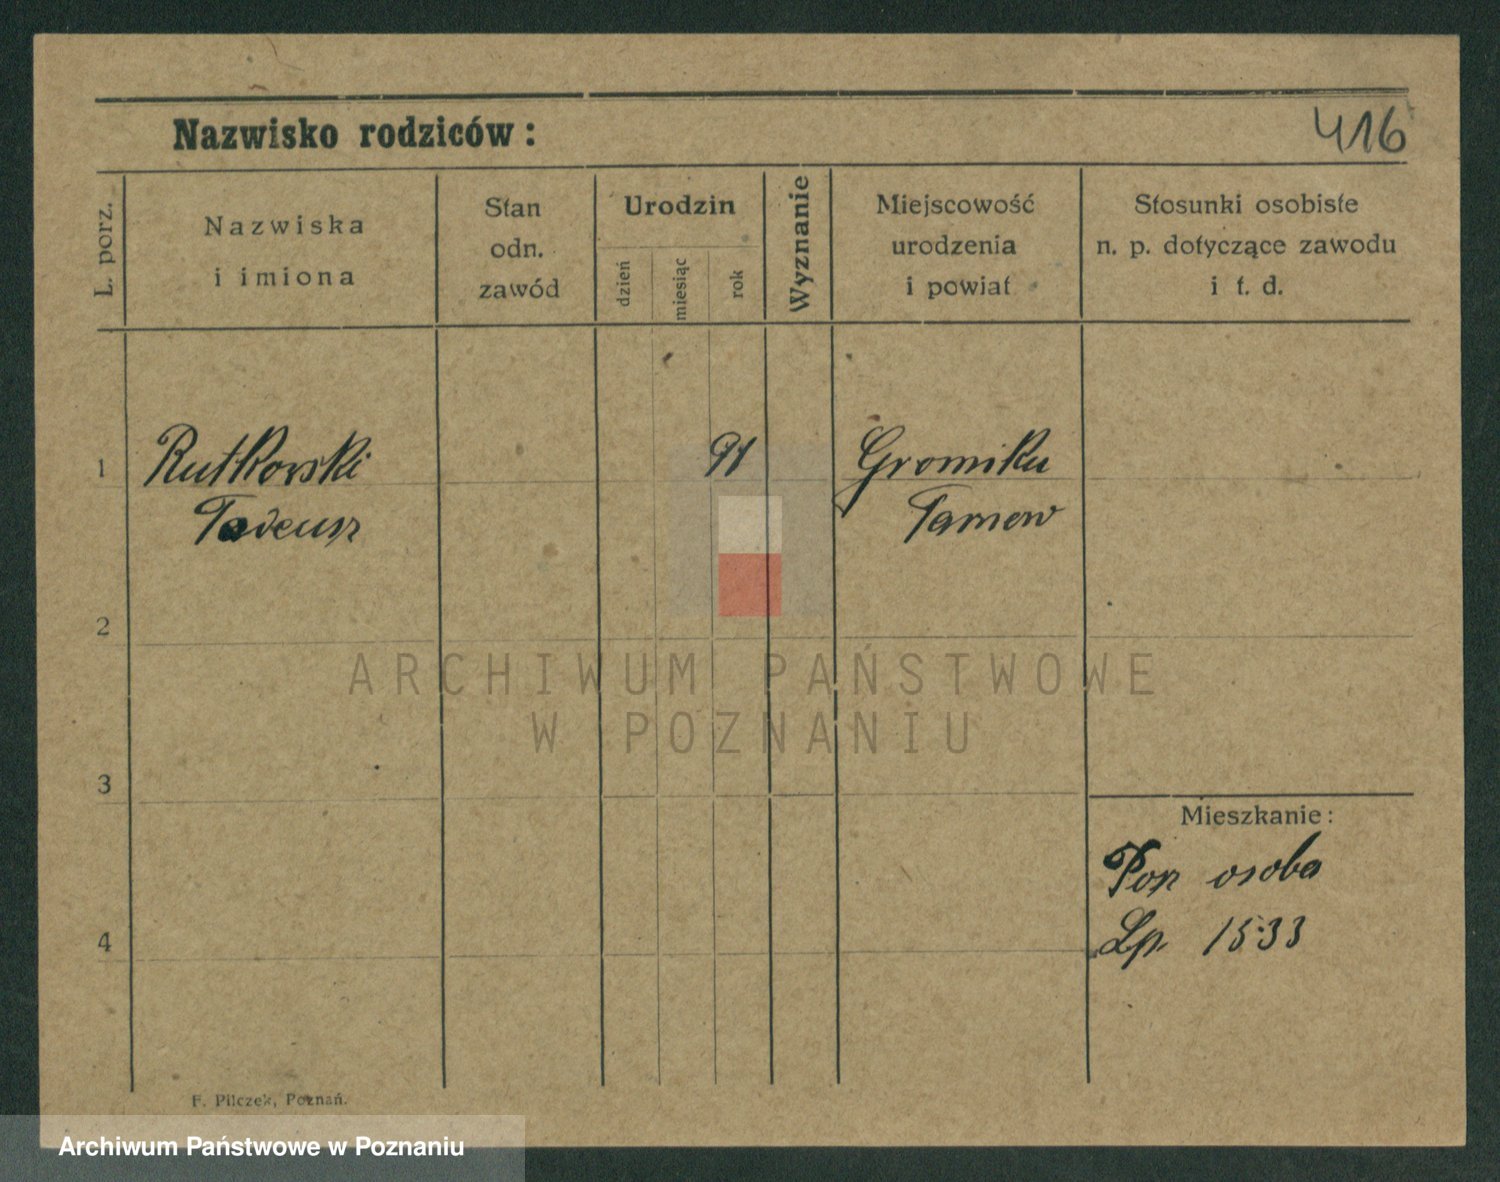 Nazwisko rodziców:
416
L. porz.
Nazwiska
i imiona
Stan
odn.
zawód
Urodzin
dzień
miesiąc
rok
Wyznanie
Miejscowość
urodzenia
i powiat
Stosunki osobiste
n. p. dotyczące zawodu
i t. d.
1
Rutkowski
Tadeusz
91
Gromiku
Tarnow
2
3
4
Mieszkanie:
Por osoba
Lp. 1533
F. Pilczek, Poznań.
ARCHIWUM PAŃSTWOWE
W POZNANIU
Archiwum Państwowe w Poznaniu